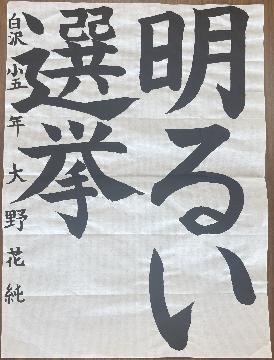 明るい
選挙
白沢小五年 大野花純